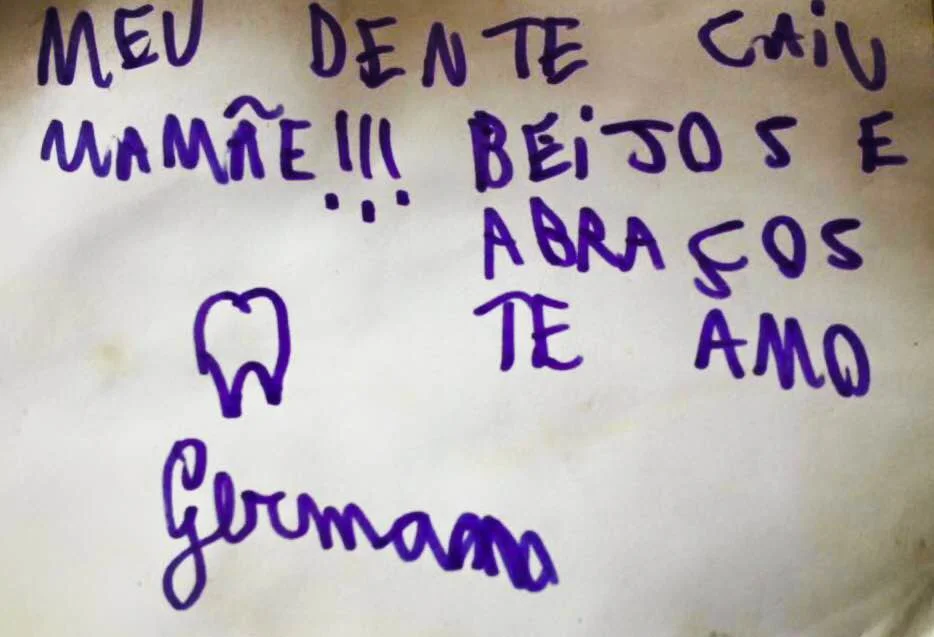 MEU DENTE CAIU
MAMÃE!!! BEIJOS E
ABRAÇOS
TE AMO
Germana